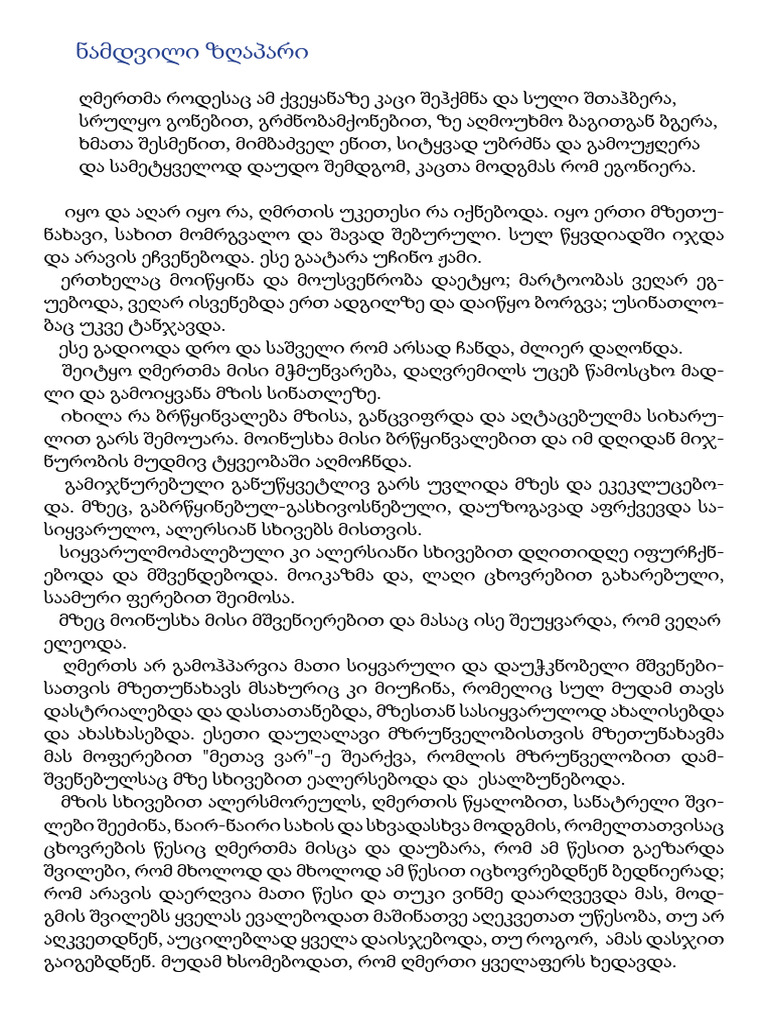 ნამდვილი ზღაპარი
ღმერთმა როდესაც ამ ქვეყანაზე კაცი შეჰქმნა და სული შთაჰბერა,
სრულყო გონებით, გრძნობამქონებით, ზე აღმოუხმო ბაგითგან ბგერა,
ხმათა შესმენით, მიმბაძველ ენით, სიტყვად უბრძნა და გამოუჟღერა
და სამეტყველოდ დაუდო შემდგომ, კაცთა მოდგმას რომ ეგონიერა.
იყო და აღარ იყო რა, ღმრთის უკეთესი რა იქნებოდა. იყო ერთი მზეთუ-
ნახავი, სახით მომრგვალო და შავად შებურული. სულ წყვდიადში იჯდა
და არავის ეჩვენებოდა. ესე გაატარა უჩინო ჟამი.
ერთხელაც მოიწყინა და მოუსვენრობა დაეტყო; მარტოობას ვეღარ ეგ-
უებოდა, ვეღარ ისვენებდა ერთ ადგილზე და დაიწყო ბორგვა; უსინათლო-
ბაც უკვე ტანჯავდა.
ესე გადიოდა დრო და საშველი რომ არსად ჩანდა, ძლიერ დაღონდა.
შეიტყო ღმერთმა მისი მჭმუნვარება, დაღვრემილს უცებ წამოსცხო მად-
ლი და გამოიყვანა მზის სინათლეზე.
იხილა რა ბრწყინვალება მზისა, განცვიფრდა და აღტაცებულმა სიხარუ-
ლით გარს შემოუარა. მოინუსხა მისი ბრწყინვალებით და იმ დღიდან მიჯ-
ნურობის მუდმივ ტყვეობაში აღმოჩნდა.
გამიჯნურებული განუწყვეტლივ გარს უვლიდა მზეს და ეკეკლუცებო-
და. მზეც, გაბრწყინებულ-გასხივოსნებული, დაუზოგავად აფრქვევდა სა-
სიყვარულო, ალერსიან სხივებს მისთვის.
სიყვარულმოძალებული კი ალერსიანი სხივებით დღითიდღე იფურჩქნ-
ებოდა და მშვენდებოდა. მოიკაზმა და, ლაღი ცხოვრებით გახარებული,
საამური ფერებით შეიმოსა.
მზეც მოინუსხა მისი მშვენიერებით და მასაც ისე შეუყვარდა, რომ ვეღარ
ელეოდა.
ღმერთს არ გამოჰპარვია მათი სიყვარული და დაუჭკნობელი მშვენები-
სათვის მზეთუნახავს მსახურიც კი მიუჩინა, რომელიც სულ მუდამ თავს
დასტრიალებდა და დასთათანებდა, მზესთან სასიყვარულოდ ახალისებდა
და ახასხასებდა. ესეთი დაუღალავი მზრუნველობისთვის მზეთუნახავმა
მას მოფერებით "მეთავ ვარ"-ე შეარქვა, რომლის მზრუნველობით დამ-
შვენებულსაც მზე სხივებით ეალერსებოდა და  ესალბუნებოდა.
მზის სხივებით ალერსმორეულს, ღმერთის წყალობით, სანატრელი შვი-
ლები შეეძინა, ნაირ-ნაირი სახის და სხვადასხვა მოდგმის, რომელთათვისაც
ცხოვრების წესიც ღმერთმა მისცა და დაუბარა, რომ ამ წესით გაეზარდა
შვილები, რომ მხოლოდ და მხოლოდ ამ წესით იცხოვრებდნენ ბედნიერად;
რომ არავის დაერღვია მათი წესი და თუკი ვინმე დაარღვევდა მას, მოდ-
გმის შვილებს ყველას ევალებოდათ მაშინათვე აღეკვეთათ უწესობა, თუ არ
აღკვეთდნენ, აუცილებლად ყველა დაისჯებოდა, თუ როგორ,  ამას დასჯით
გაიგებდნენ. მუდამ ხსომებოდათ, რომ ღმერთი ყველაფერს ხედავდა.